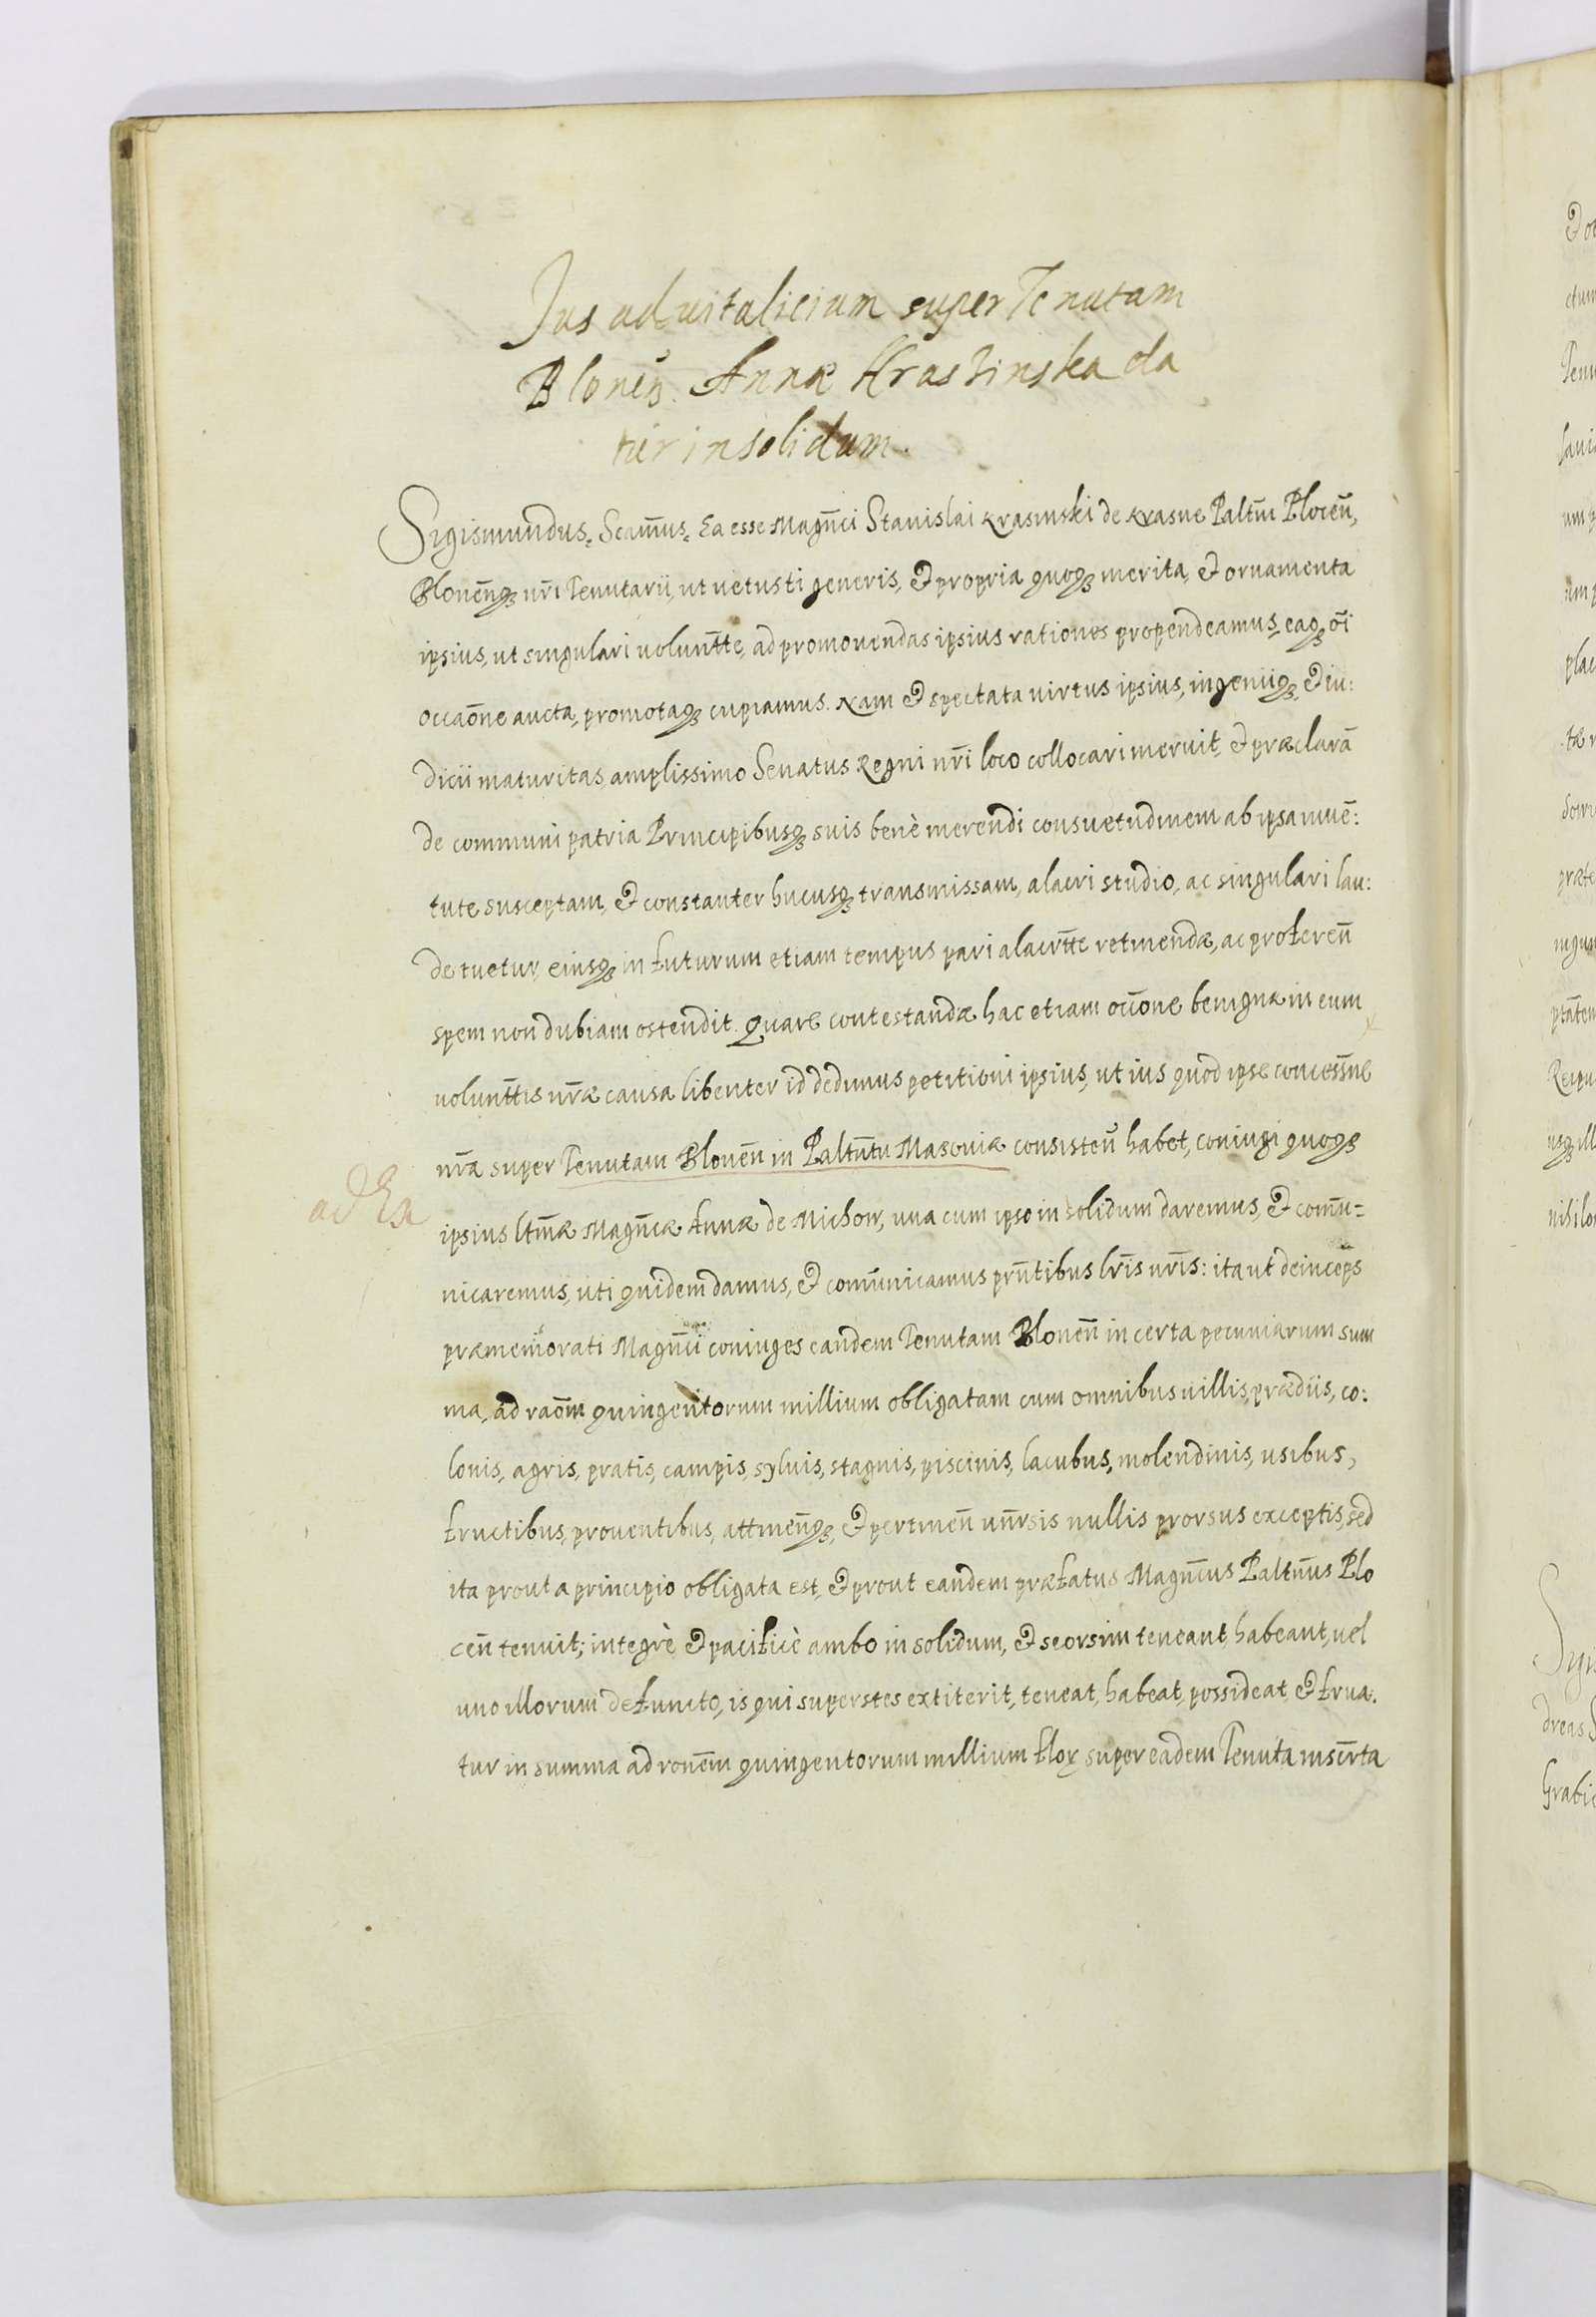 Jus advitalicium super Tenutam
Blonen̄. Annæ Krasinska da
tur in solidum.
Sigismundus. Scimus. Ea esse Magn̄ci Stanislai Krasinski de Krasne Paltn̄i Plocen̄,
Blonen̄q3 nr̄i Tenutarii, ut vetusti generis, et propria quoq3 merita, et ornamenta
ipsius, ut singulari volunt̄te, ad promovendas ipsius rationes propendeamus, eaq3 oī
occaōne aucta, promotaq3 cupiamus. Nam et spectata virtus ipsius, ingeniiq3, et iu:
dicii maturitas amplissimo Senatus Regni nr̄i loco collocari meruit, et præclarā
de communi patria Principibusq3 suis benè merendi consuetudinem ab ipsa iuvē:
tute susceptam, et constanter hucusq3 transmissam, alacri studio, ac singulari lau:
de tuetur, eiusq3 in futurum etiam tempus pari alacrit̄te retinendæ, ac proferen̄
spem non dubiam ostendit. Quare contestandæ hac etiam occ̄one benignæ in eum
volunt̄tis nr̄æ causa libenter id dedimus petitioni ipsius, ut ius quod ipse concess̄ne
nr̄a super Tenutam Blonen̄ in Paltn̄tu Masoviæ consisten̄ habet, coniugi quoq3
ad Ex
ipsius ltm̄æ Magn̄cæ Annæ de Michow, una cum ipso in solidum daremus, et com̄u=
nicaremus, uti quidem damus, et com̄unicamus prn̄tibus lr̄is nr̄is: ita ut deinceps
præmemorati Magn̄ci coniuges eandem Tenutam Blonen̄ in certa pecuniarum sum
ma, ad raōm quingentorum millium obligatam cum omnibus villis, prædiis, co:
lonis, agris, pratis, campis, sylvis, stagnis, piscinis, lacubus, molendinis, usibus,
fructibus, proventibus, attinen̄q3, et pertinen̄ un̄rsis nullis prorsus exceptis, sed
ita prout a principio obligata est, et prout eandem præfatus Magn̄cus Paltn̄us Plo
cen̄ tenuit; integrè et pacificè ambo in solidum, et seorsim teneant, habeant, vel
uno illorum defuncto, is qui superstes extiterit, teneat, habeat, possideat, et frua:
tur in summa ad ronēm quingentorum millium flor super eadem Tenuta inscr̄ta